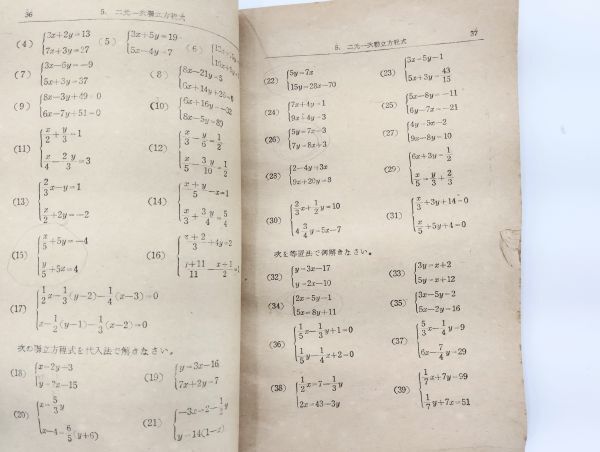 36 5. 二元一次聯立方程式
(4) 3x+2y=13 7x+3y=27
(5) 3x+5y=19 5x-4y=7
(6)
(7) 3x-6y=-9 5x+3y=37
(8) 8x-21y=3 6x+14y
(9) 8x-3y+49=0 6x-7y+51=0
(10) 6x+16y=-32 8x-5y=89
(11) x/2+y/3=1 x/4-2y/3=3
(12) x/3-y/6=1/2 x/5-3/10 y=1/2
(13) 2/3 x-y=1 x/2+2y=-2
(14) x+y/5-x=1 x/3+3/4 y=5/4
(15) x/5+5y=-4 y/5+5x=4
(16) +2/3+4y=2 +11/11-x+1/2
(17) 1/2 x-1/3(y-2)-1/4(x-3)=0 x-1/2(y-1)-1/3(x-2)=0
次の聯立方程式を代入法で解きなさい。
(18) x=2y-3 y=2x-15
(19) y=3x-16 7x+2y=7
(20) x=5/3 y x-4=6/5(y+6)
(21) -3x=2-1/2 y y=14(1-x)
5. 二元一次聯立方程式 37
(22) 5y=7x 15y=28x-70
(23) 3x=5y-1 5x+3y=43/15
(24) 7x+4y=1 9x+4y=3
(25) 5x-8y=-11 6y-7x=-21
(26) 5y=7x-3 7y=8x+3
(27) 4y=5x-2 9x=8y-10
(28) 2-4y=3x 9x+20y=8
(29) 6x+3y=1/2 x/5=y/3+2/3
(30) 2/3 x+1/2 y=10 4 3/4 y=5x-7
(31) x/3+3y+14=0 x/5+5y+4=0
次を等置法で解きなさい。
(32) y=3x-17 y=2x-10
(33) 3y=x+2 5y=x+12
(34) 2x=5y-1 5x=8y+11
(35) 3x=5y-2 5x=2y-16
(36) 1/5 x-1/3 y+1=0 1/5 y-1/4 x+2=0
(37) 5/3 x-1/4 y=9 6x-7/4 y=29
(38) 1/2 x=7-1/3 y 2x=43-3y
(39) 1/7 x+7y=99 1/7 y+7x=51